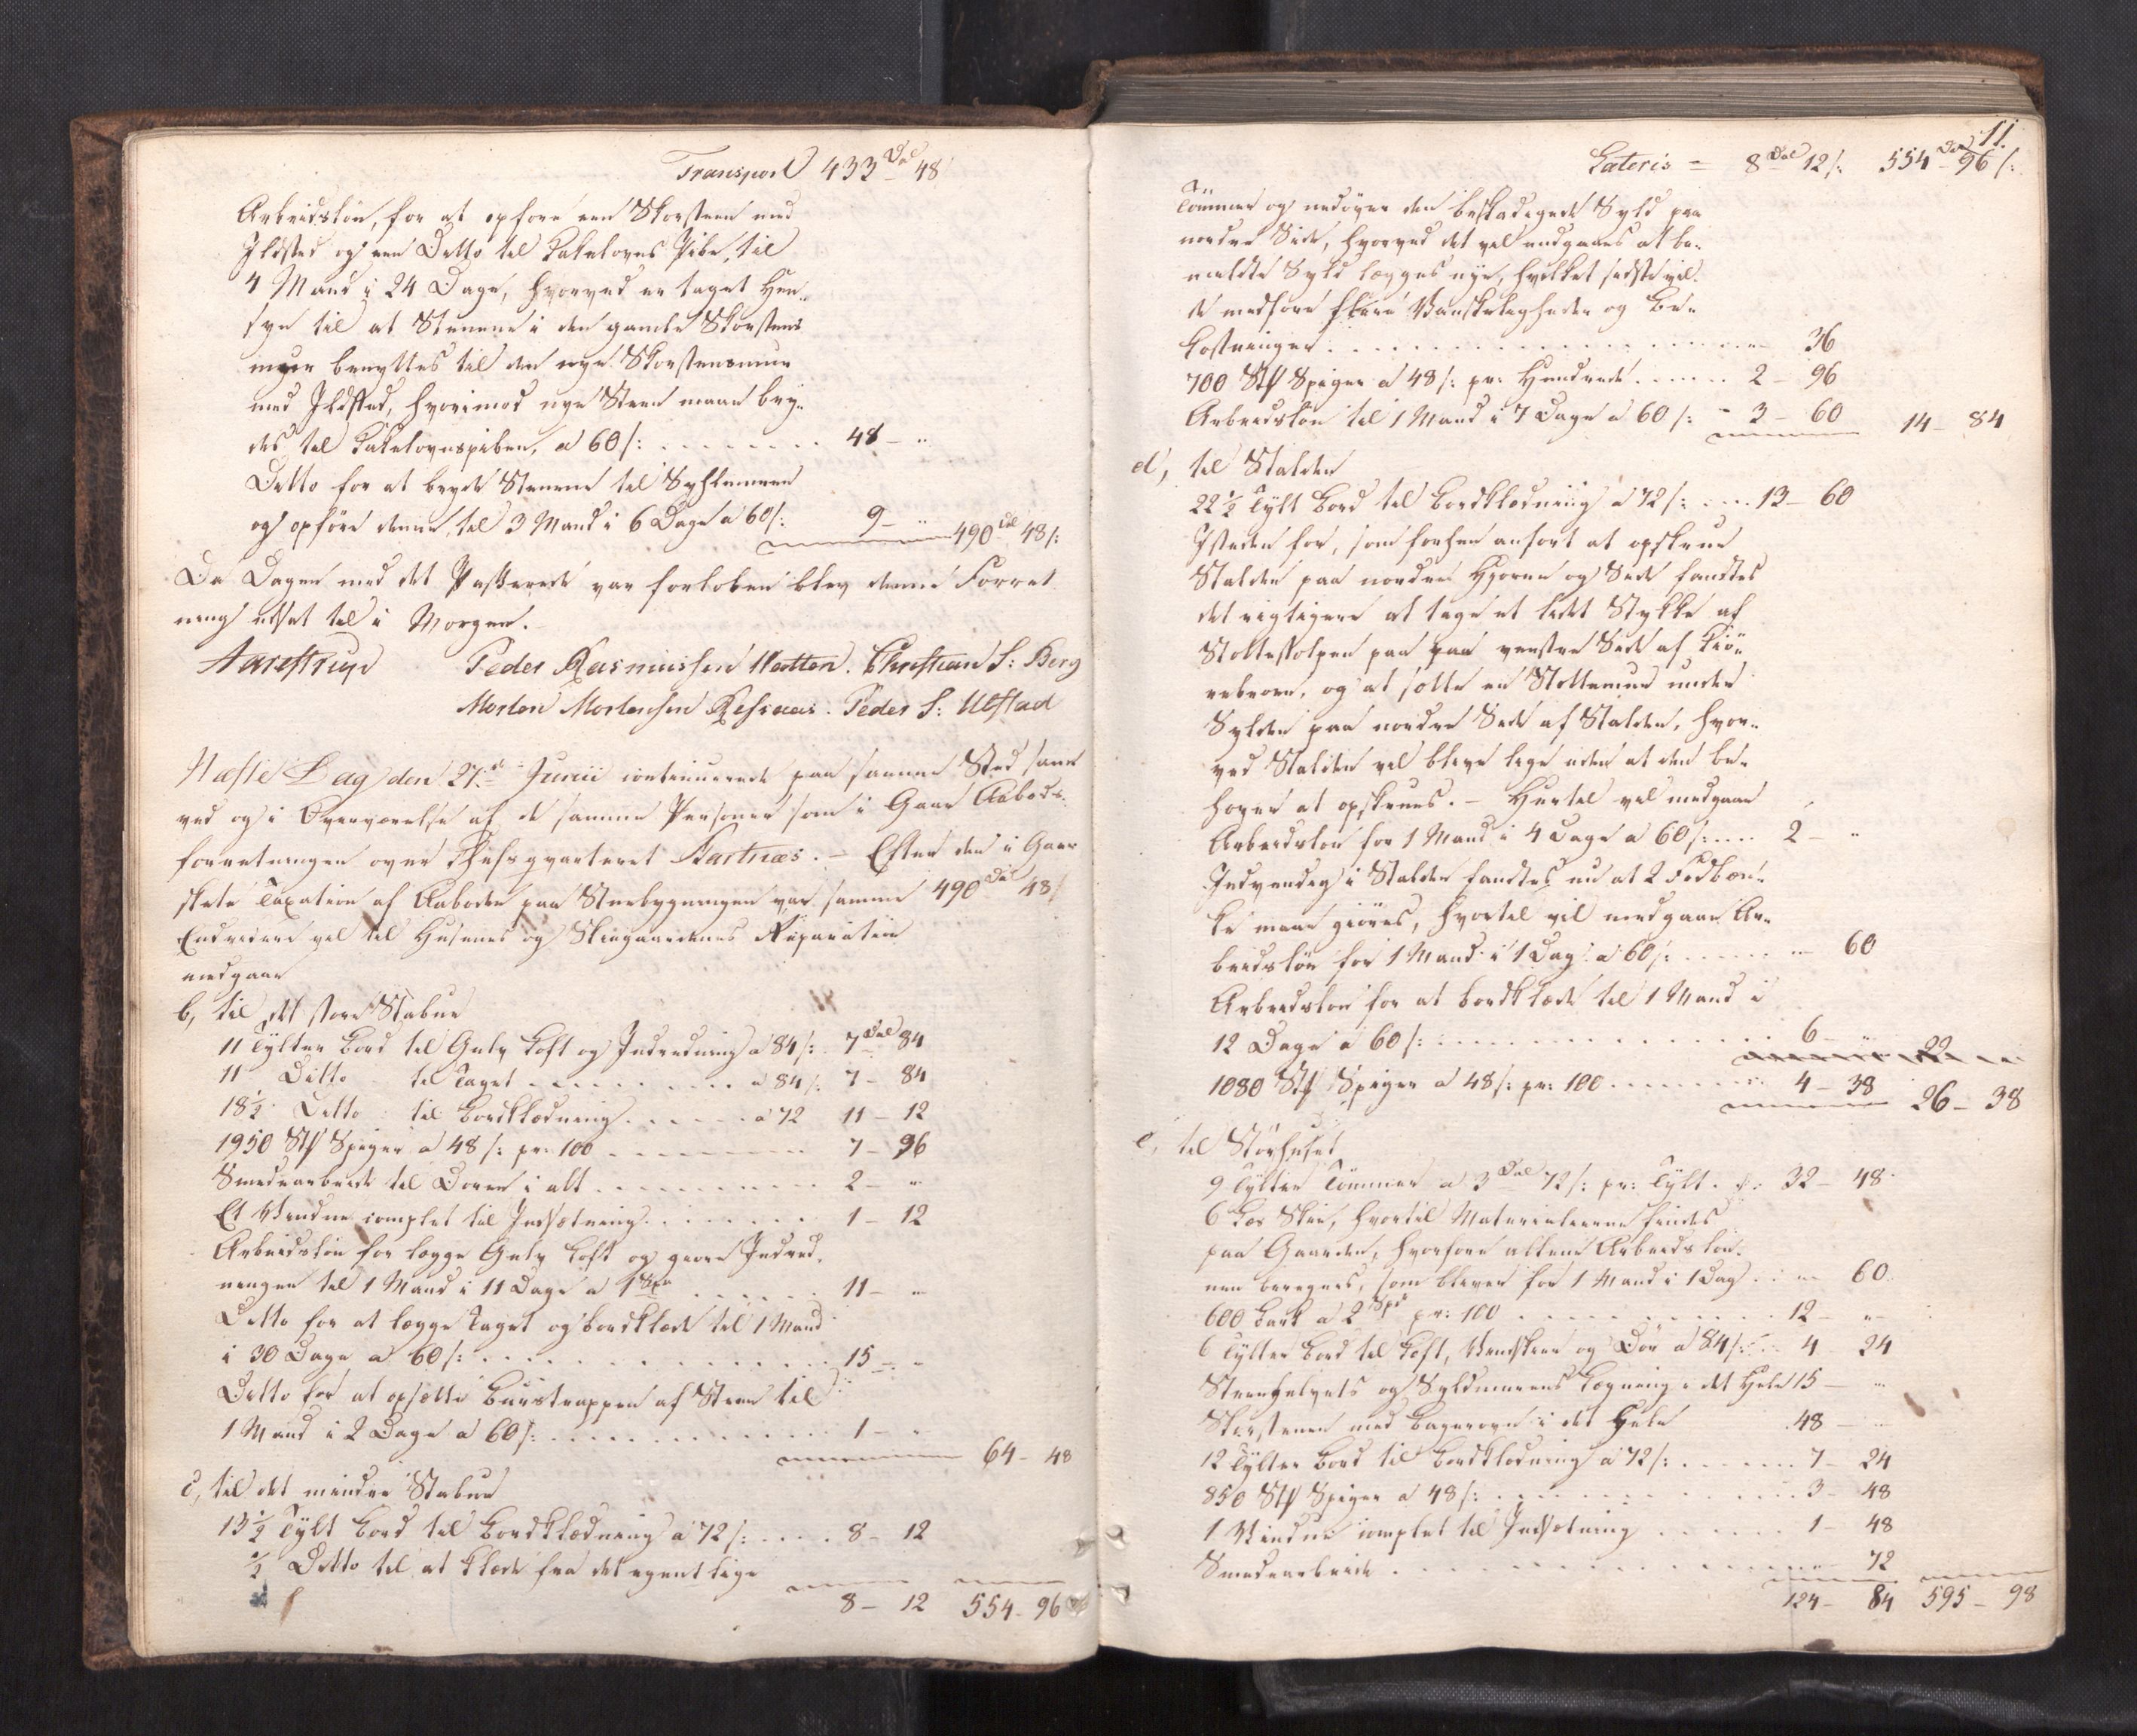 Transport 433 Dal 48
Arbeidslön, for at opföre een Skorsteen med
Ildsted og een Ditto til Kakelovns Pibe, til
4 Mand i 24 Dage, hvorved er taget Hen-
syn til at Stenene i den gamle Skorsteens
muur benyttes til den nye Skorsteensmuur
med Ildsted, hvorimod nye Steen maae bry-
des til Kakelovnspiben, a 60 s: . . . . . 48 - "
Ditto for at bryde Stenene til Syldmuren
og opföre denne, til 3 Mand i 6 Dage a 60 s: 9 - " 490 Dal 48 s:
Da Dagen med det Passerede var forloben blev denne Forret
ning udsat til i Morgen.
Aarestrup Peder Rasmussen Christian S: Berg
Morten Mortensen Refsnæs. Peder S: Ulstad
Næste Dag den 27de Junii continuerede paa samme Sted sam
ved og i Overværelse af de samme Personer som i Gaar Aabods-
forretningen over Chefsqvarteret - Efter den i Gaar
skete Taxation af Aaboden paa Stuebygningen var samme 490 Dal 48 s
Endvidere vil til Husenes og Skiegaardenes Reparation
medgaae
b, til det store Stabur
11 Tylter Bord til Gulv Loft og Indredning a 84 s: 7 Dal 84
11 Ditto til Taget . . . . . a 84 s: 7 - 84
18½ Ditto til Bordklædning . . . . a 72 11 - 12
1950 Stk Spiger a 48 s: pr: 100 . . . . . 7 - 96
Smedearbeide til Doren i alt . . . . . 2 - "
Et Vindue complet til Indsætning . . . . . 1 - 12
Arbeidslön for lægge Gulv Loft og giöre Indred-
ningen til 1 Mand i 11 Dage a 1 . . . . 11 - "
Ditto for at lægge Taget og bordklæde til 1 Mand
i 30 Dage a 60 s: . . . . . 15 - "
Ditto for at opsætte Buurstrappen af Steen til
1 Mand i 2 Dage a 60 s: . . . . . 1 - "
64 - 48
c, til det mindre Stabur
13½ Tylt Bord til Bordklædning a 72 s: . . . . 8 - 12
½ Ditto til at klæde fra det egentlige
8 - 12 554 - 96
11.
Lateris = 8 Dal 12 s: 554 Dal 96 s:
Tömmer og nedöver den beskadigede Syld paa
nordre Side, hvorved det vil undgaaes at be-
meldte Syld lægges nye, hvilket sidste vil-
de medföre flere Vanskeligheder og Be-
kostninger . . . . . " - 36
700 Stk Spiger a 48 s: pr: Hundrede . . . . 2 - 96
Arbeidslön til 1 Mand i 7 Dage a 60 s: - 3 - 60 14 - 84
d, til Stalden
22½ Tylt Bord til Bordklædning a 72 s: . . . 13 - 60
Istedet for, som forhen anfört at opskrue
Stalden paa nordre Hjorne og Side fandtes
det rigtigere at tage et lidet Stykke af
Stottestolpen paa paa venstre Side af Kiö-
rebroen, og at sætte en Stottemuur under
Sylden paa nordre Side af Stalden, hvor-
ved Stalden vil blive lige uden at den be-
höver at opskrues. - Hertil vil medgaae
Arbeidslön for 1 Mand i 4 Dage a 60 s: . . . 2 - "
Indvendig i Stalden fandtes nu at 2 Födbæn-
ke maae giöres, hvortil vil medgaae Ar-
beidslön for 1 Mand i 1 Dag a 60 s: . . . . " - 60
Arbeidslön for at bordklæde til 1 Mand i
12 Dage a 60 s: . . . . . 6 - " 22
1080 Stk Spiger a 48 s: pr: 100 . . . . . 4 - 38 26 - 38
e, til Störhuset
9 Tylter Tömmer a 3 Dal 72 s: pr: Tylt . . 32 - 48
6 Læs Skie, hvortil Materialerne findes
paa Gaarden, hvorfore allene Arbeidslön-
nen beregnes, som bliver for 1 Mand i 1 Dag . . " - 60
600 Bark a 2 Spd pr: 100 . . . . . 12 - "
6 Tylter Bord til Loft, Vindskier og Dör a 84 s: . 4 - 24
Steenhelvets og Syldmurens Lægning i det Hele 15 - "
Skorstenen med Bagerovn i det Hele 48 - "
12 Tylter Bord til Bordklædning a 72 s: . . . . 7 - 24
850 Stk Spiger a 48 s: . . . . . 3 - 48
1 Vindue complet til Indsætning . . . . . 1 - 48
Smedearbeide . . . . . " - 72
124 - 84 595 - 98